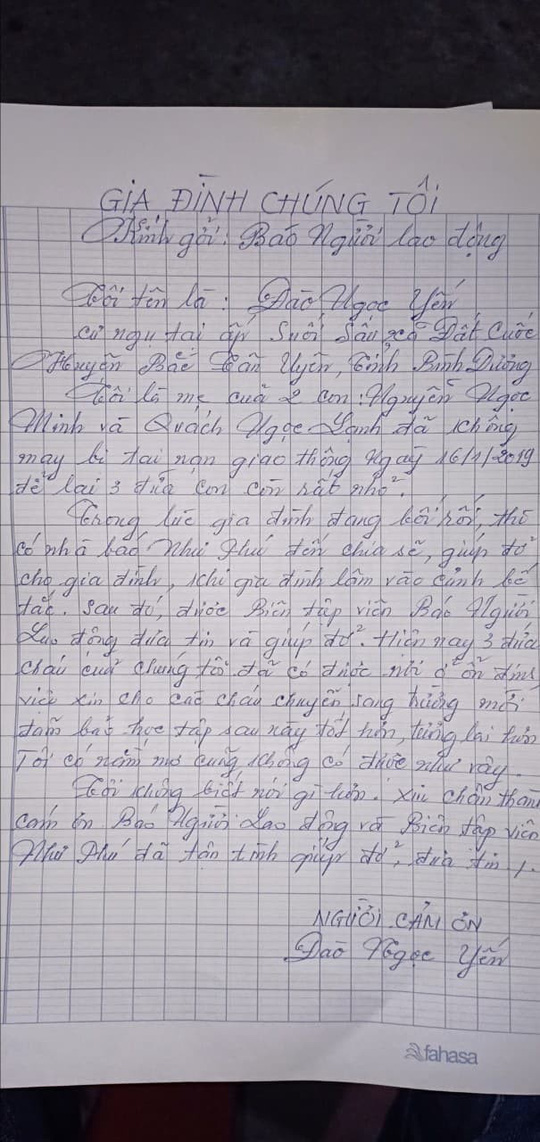 GIA ĐÌNH CHÚNG TÔI
Kính gởi: Báo Người lao động
Tôi tên là: Đào Ngọc Yến
cư ngụ tại ấp Suối Sâu xã Đất Cuốc
Huyện Bắc Tân Uyên, Tỉnh Bình Dương
Tôi là mẹ của 2 con: Nguyễn Ngọc
Minh và Quách Ngọc Lạnh đã không
may bị tai nạn giao thông Ngày 16/1/2019
để lại 3 đứa con còn rất nhỏ.
Trong lúc gia đình đang bối rối, thì
có nhà báo Như Phú đến chia sẽ, giúp đỡ
cho gia đình, khi gia đình lâm vào cảnh bế
tắc. Sau đó, được Biên tập viên Báo Người
Lao động đưa tin và giúp đỡ. Hiện nay 3 đứa
cháu của chúng tôi đã có được nơi ở ổn định
việc xin cho các cháu chuyển sang trường mới
đảm bảo học tập sau này tốt hơn, tương lai hơn
Tôi có nằm mơ cũng không có được như vậy.
Tôi không biết nói gì hơn. Xin chân thành
cảm ơn Báo Người Lao động và Biên tập viên
Như Phú đã tận tình giúp đỡ, đưa tin /.
NGƯỜI CẢM ƠN
Đào Ngọc Yến
fahasa